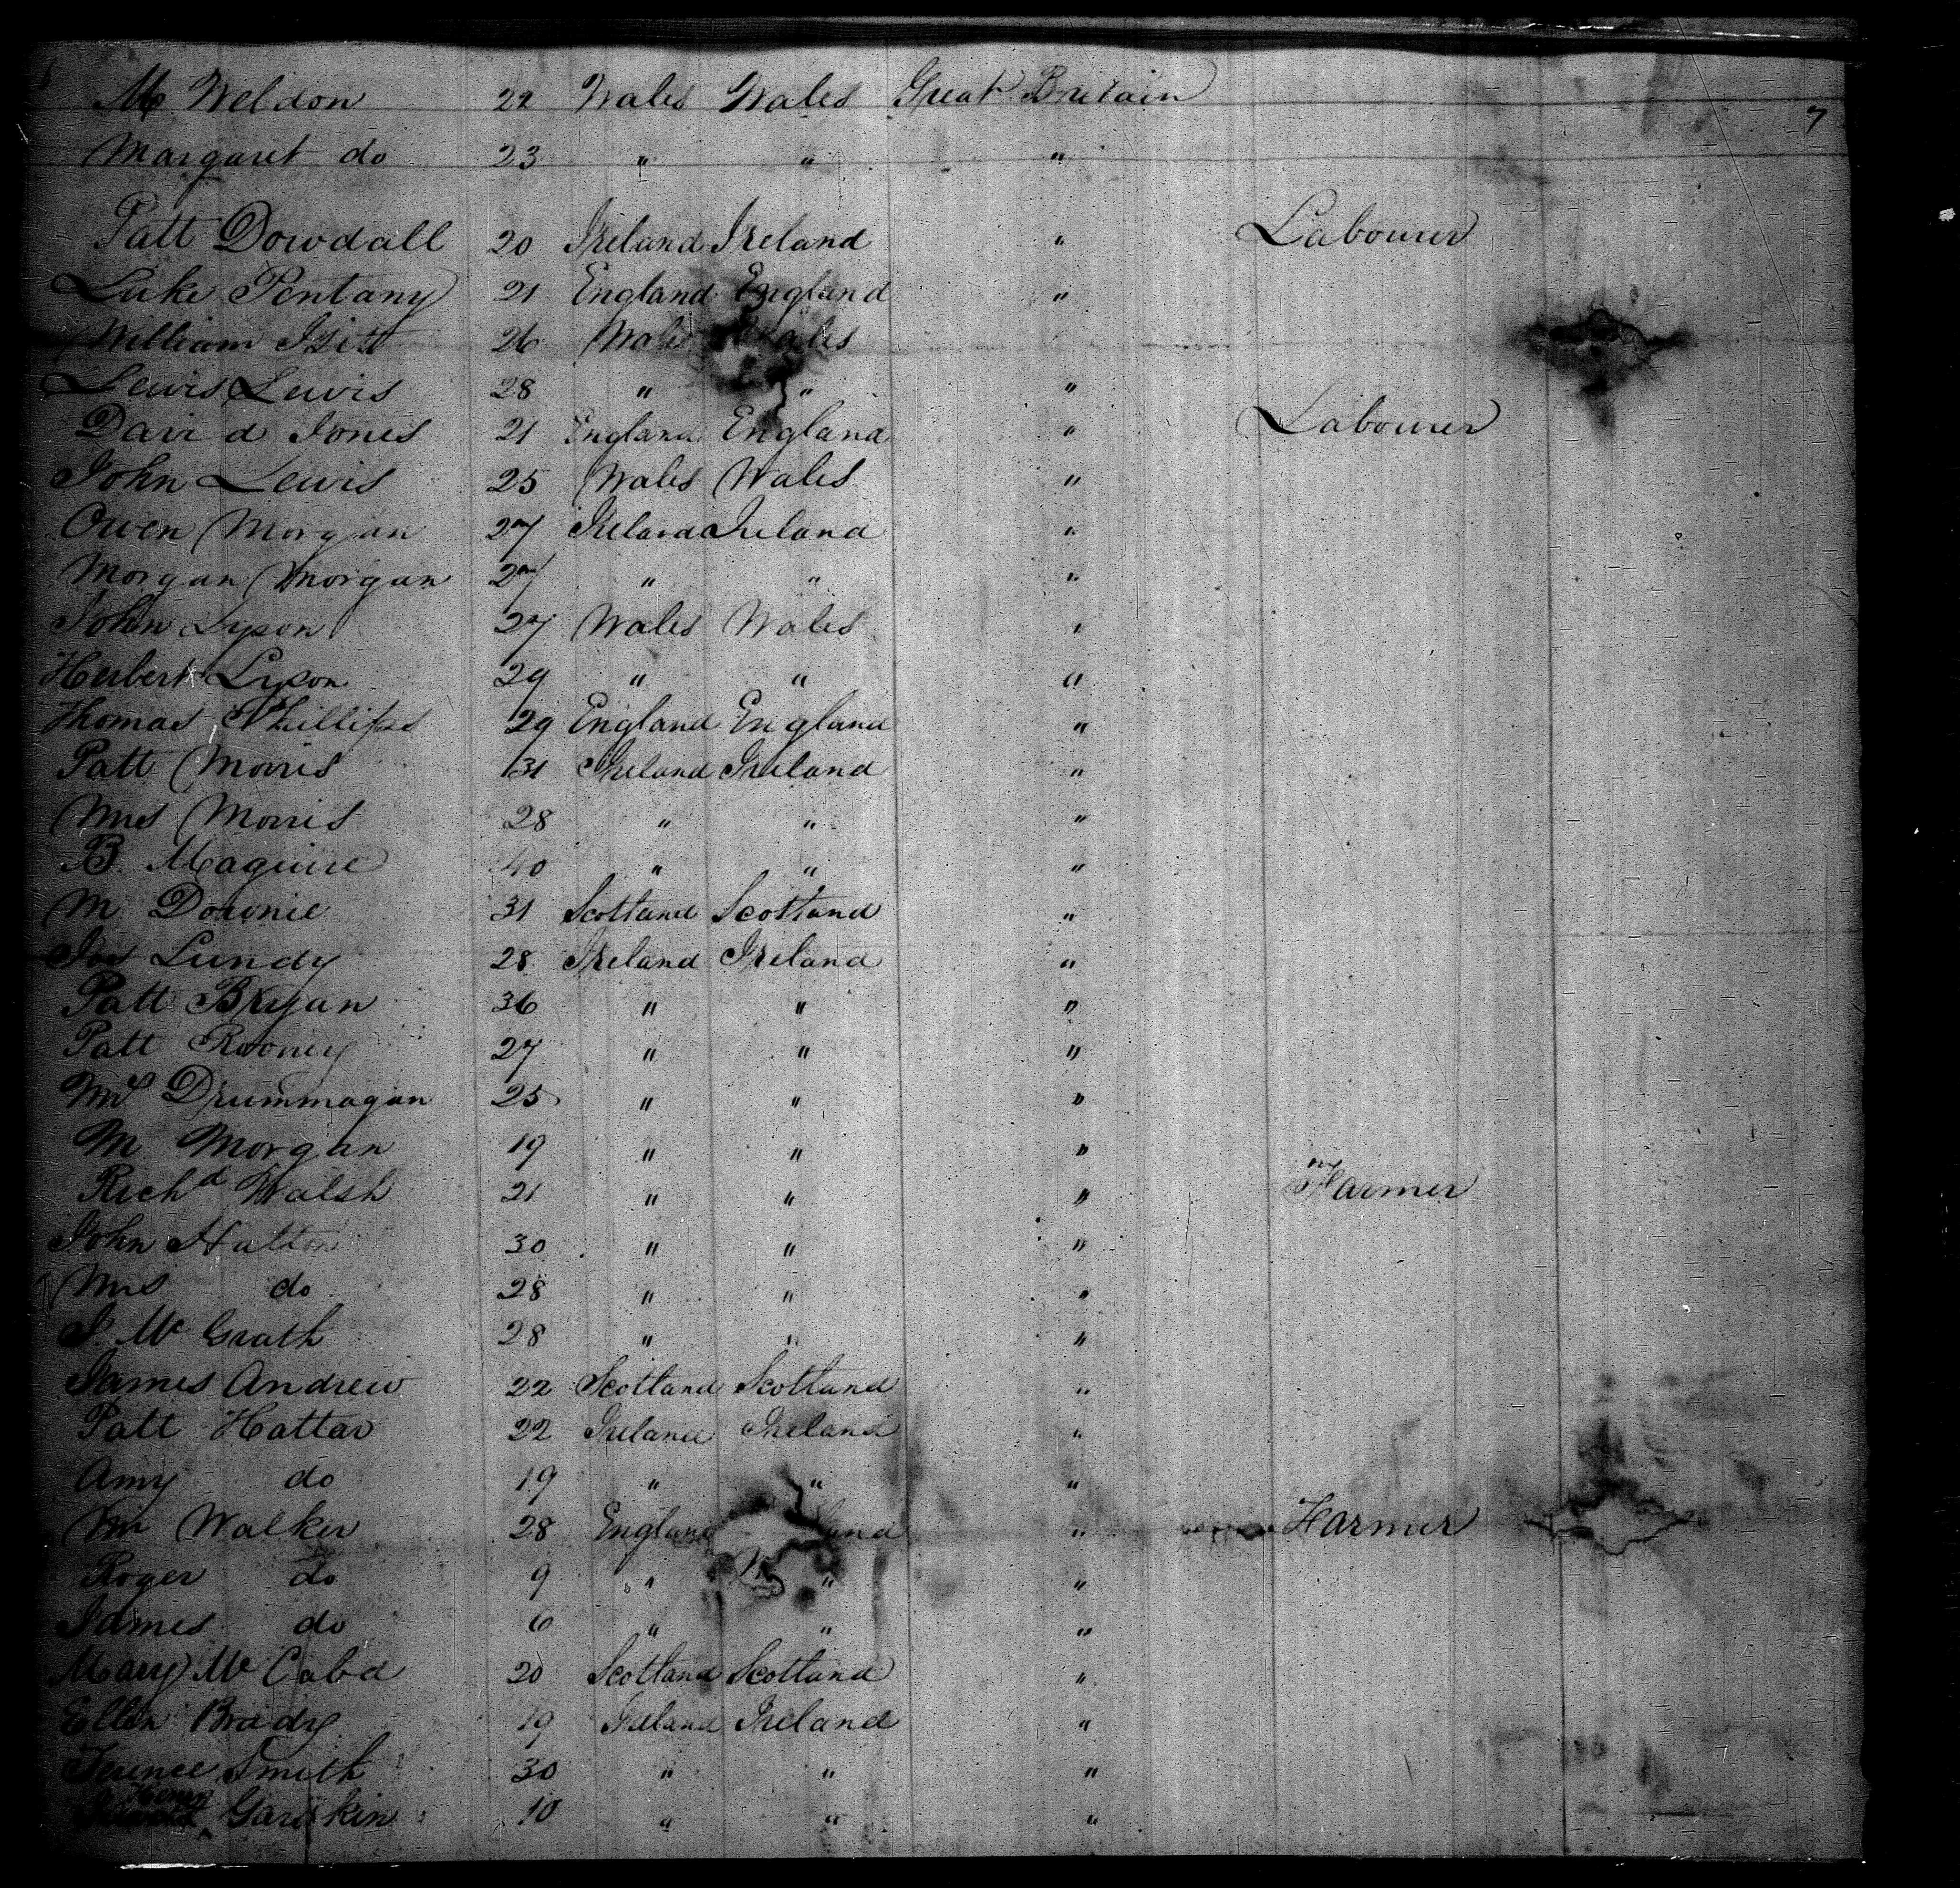 M Weldon 22 Wales Wales Great Britain
7
Margaret do 23 " " "
Patt Dowdall 20 Ireland Ireland " Labourer
Luke Pentany 21 England England "
William 26 Wales Wales
Lewis Lewis 28 " " "
David Jones 21 England England " Labourer
John Lewis 25 Wales Wales "
Owen Morgan 27 Ireland Ireland "
Morgan Morgan 27 " " "
John Lyson 27 Wales Wales "
Herbert Lyson 29 " " "
Thomas Phillips 29 England England "
Patt Morris 31 Ireland Ireland "
Mrs Morris 28 " " "
B Maguire 40 " " "
M Downie 31 Scotland Scotland "
Jos Lundy 28 Ireland Ireland "
Patt Bryan 36 " " "
Patt Rooney 27 " " "
Drummagan 25 " " "
M Morgan 19 " " "
Richd Walsh 21 " " " Farmer
John Halton 30 " " "
Mrs do 28 " " "
J. Mc Grath 28 " " "
James Andrew 22 Scotland Scotland "
Patt Hattar 22 Ireland Ireland "
Amy do 19 " " "
Mr Walker 28 England " Farmer
Roger do 9 " " "
James do 6 " " "
Mary Mc Cabe 20 Scotland Scotland "
Ellen Brady 19 Ireland Ireland "
Terence Smith 30 " " "
Henry
Garrkin 10 " " "